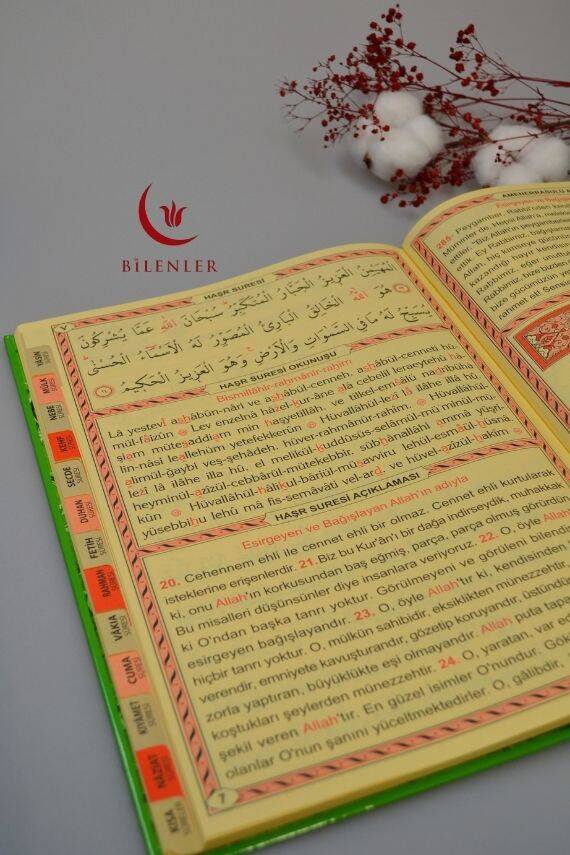 BİLENLER
HAŞR SURESİ
٧
الْمُهَيْمِنُ الْعَزِيزُ الْجَبَّارُ الْمُتَكَبِّرُ سُبْحَانَ اللّٰهِ عَمَّا يُشْرِكُونَ
هُوَ اللّٰهُ الْخَالِقُ الْبَارِئُ الْمُصَوِّرُ لَهُ الْاَسْمَاءُ الْحُسْنٰى
يُسَبِّحُ لَهُ مَا فِي السَّمٰوَاتِ وَالْاَرْضِ وَهُوَ الْعَزِيزُ الْحَكِيمُ
HAŞR SURESİ OKUNUŞU
Bismillâhir-rahmânir-rahîm
Lâ yestevî ashâbün-nâri ve ashâbül-cenneh, ashâbül-cenneti hü-
mül-fâizûn Lev enzelnâ hâzel-kur'âne alâ cebelil leraeytehû hâ-
şiam müteşaddiam min haşyetillâh, ve tilkel-emsâlü nadribühâ
lin-nâsi leallehüm yetefekkerûn Hüvallâhül-lezî lâ ilâhe illâ hû,
âlimül-ğaybi veş-şehâdeh, hüver-rahmânür-rahîm. Hüvallâhül-
lezî lâ ilâhe illa hû, el melikül-kuddûsüs-selâmül-mü'minül-mü-
heyminül-azîzül-cebbârül-mütekebbir, sübhânallâhi ammâ yüşri-
kûn Hüvallâhül-hâlikul-bâriül-müsavviru lehül-esmâül-hüsnâ,
yüsebbihu lehû mâ fis-semâvâti vel-ard, ve hüvel-azîzül-hakîm
HAŞR SURESİ AÇIKLAMASI
Esirgeyen ve Bağışlayan Allah'ın adıyla
20. Cehennem ehli ile cennet ehli bir olmaz. Cennet ehli kurtularak,
isteklerine erişenlerdir. 21. Biz bu Kur'ân'ı bir dağa indirseydik, muhakkak
ki, onu Allah'ın korkusundan baş eğmiş, parça, parça olmuş görürdün.
Bu misalleri düşünsünler diye insanlara veriyoruz. 22. O, öyle Allah'tır
ki O'ndan başka tanrı yoktur. Görülmeyeni ve görüleni bilendir.
esirgeyen bağışlayandır. 23. O, öyle Allah'tır ki, kendisinden
hiçbir tanrı yoktur. O, mülkün sahibidir, eksiklikten münezzehtir
verendir, emniyete kavuşturandır, gözetip koruyandır, üstündür
zorla yaptıran, büyüklükte eşi olmayandır. Allah puta tapa
koştukları şeylerden münezzehtir. 24. O, yaratan, var ed
şekil veren Allah'tır. En güzel isimler O'nundur. Gök
olanlar O'nun şanını yüceltmektedirler. O, gâlibdir,
7
YÂSİN SURESİ
MÜLK SURESİ
NEBE SURESİ
KEHF SURESİ
SECDE SURESİ
DUHAN SURESİ
FETİH SURESİ
RAHMAN SURESİ
VÂKIA SURESİ
CUMA SURESİ
KIYÂMET SURESİ
NAZİAT SURESİ
KISA SURELER
AMENERRASULÜ A
Esirgeyen ve Bağış
285. Peygamber, Rabbi'nden
Mü'minler de. Hepsi Allah'a, mele
ettiler. "Biz Allah'ın peygamber